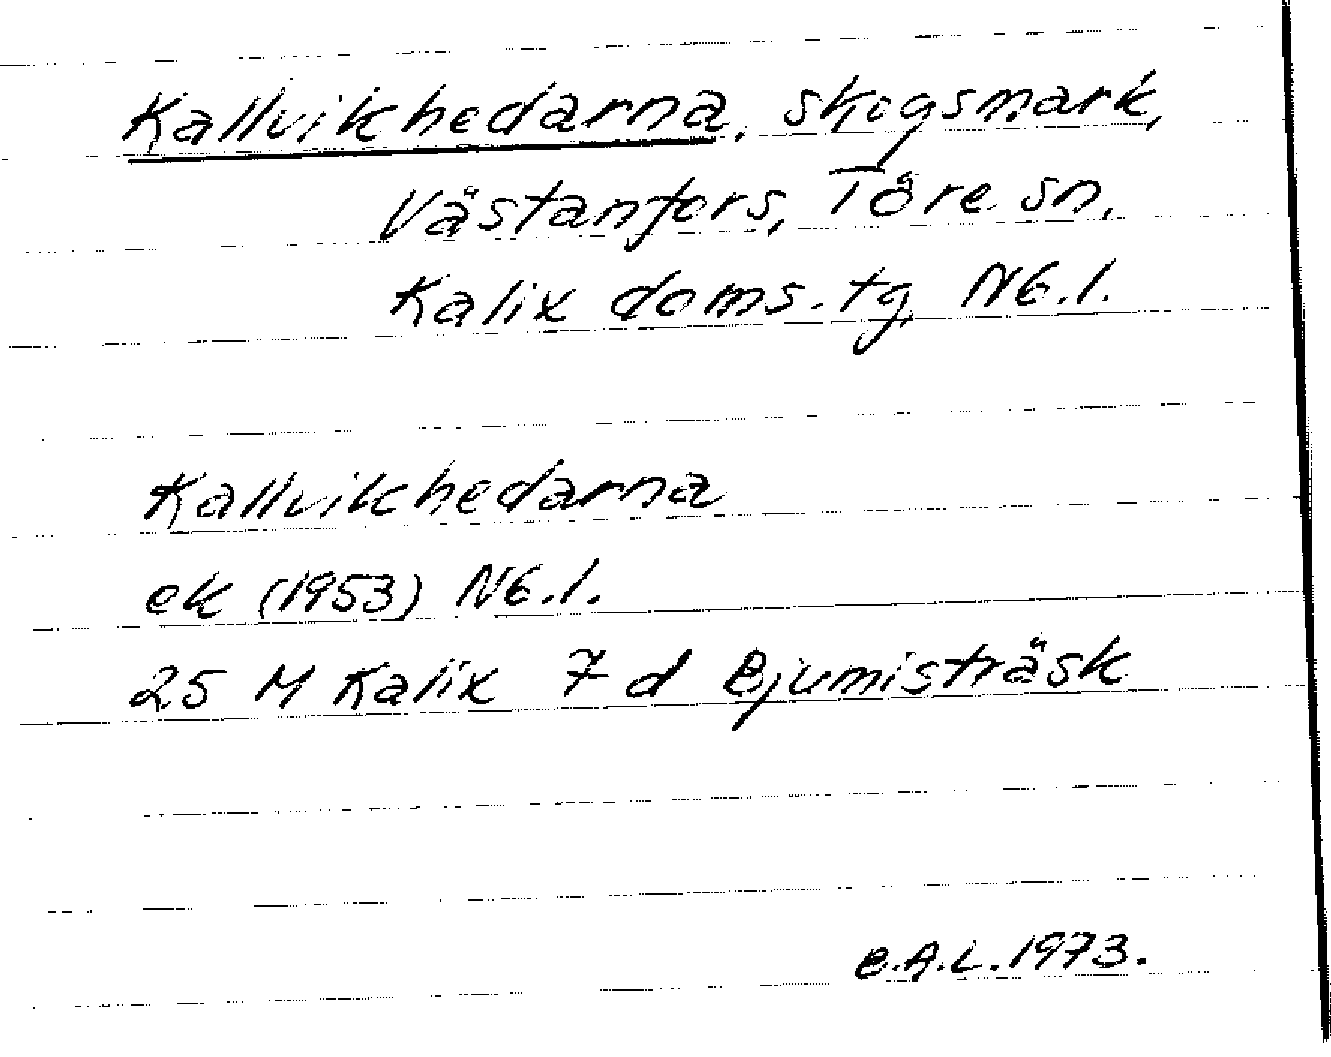 Kallvikhedarna, skogsmark,
Västanfors, Töre sn,
Kalix doms.tg, Nb.l.
Kallvikhedarna
ek (1953) Nb.l.
25 M Kalix 7 d Bjumisträsk
B.A.L. 1973.